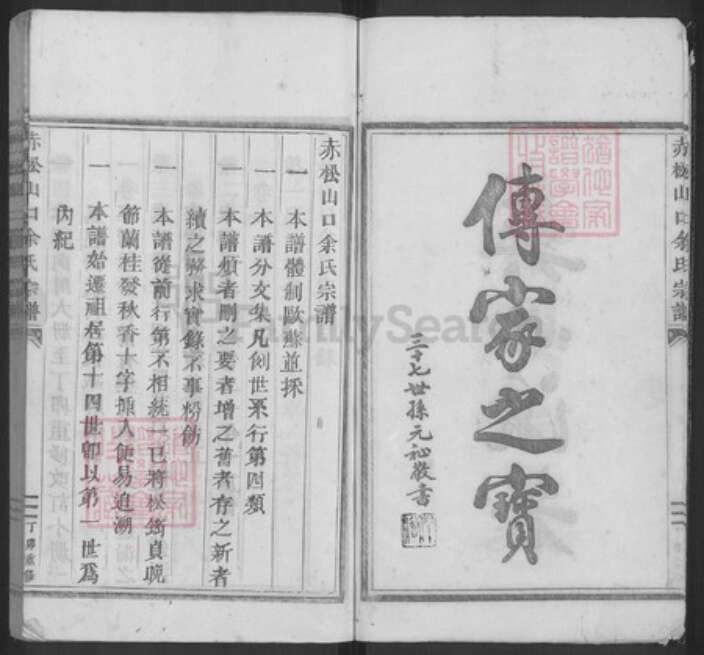 赤松山口余氏宗譜
傳家之寶
三十七世孫元初敬書
赤松山口余氏宗譜
一本譜體制歐蘇並採
一本譜分文集凡例世系行第四類
一本譜煩者刪之要者增之舊者存之新者
續之務求實錄不事粉飾
一本譜從前行第不相統一已將松筠貞晚
節蘭桂發秋香十字插入便易追溯
一本譜始遷祖居第十四世卽以第一世爲
內紀
赤松山口余氏宗譜
丁卯重修
FamilySearch